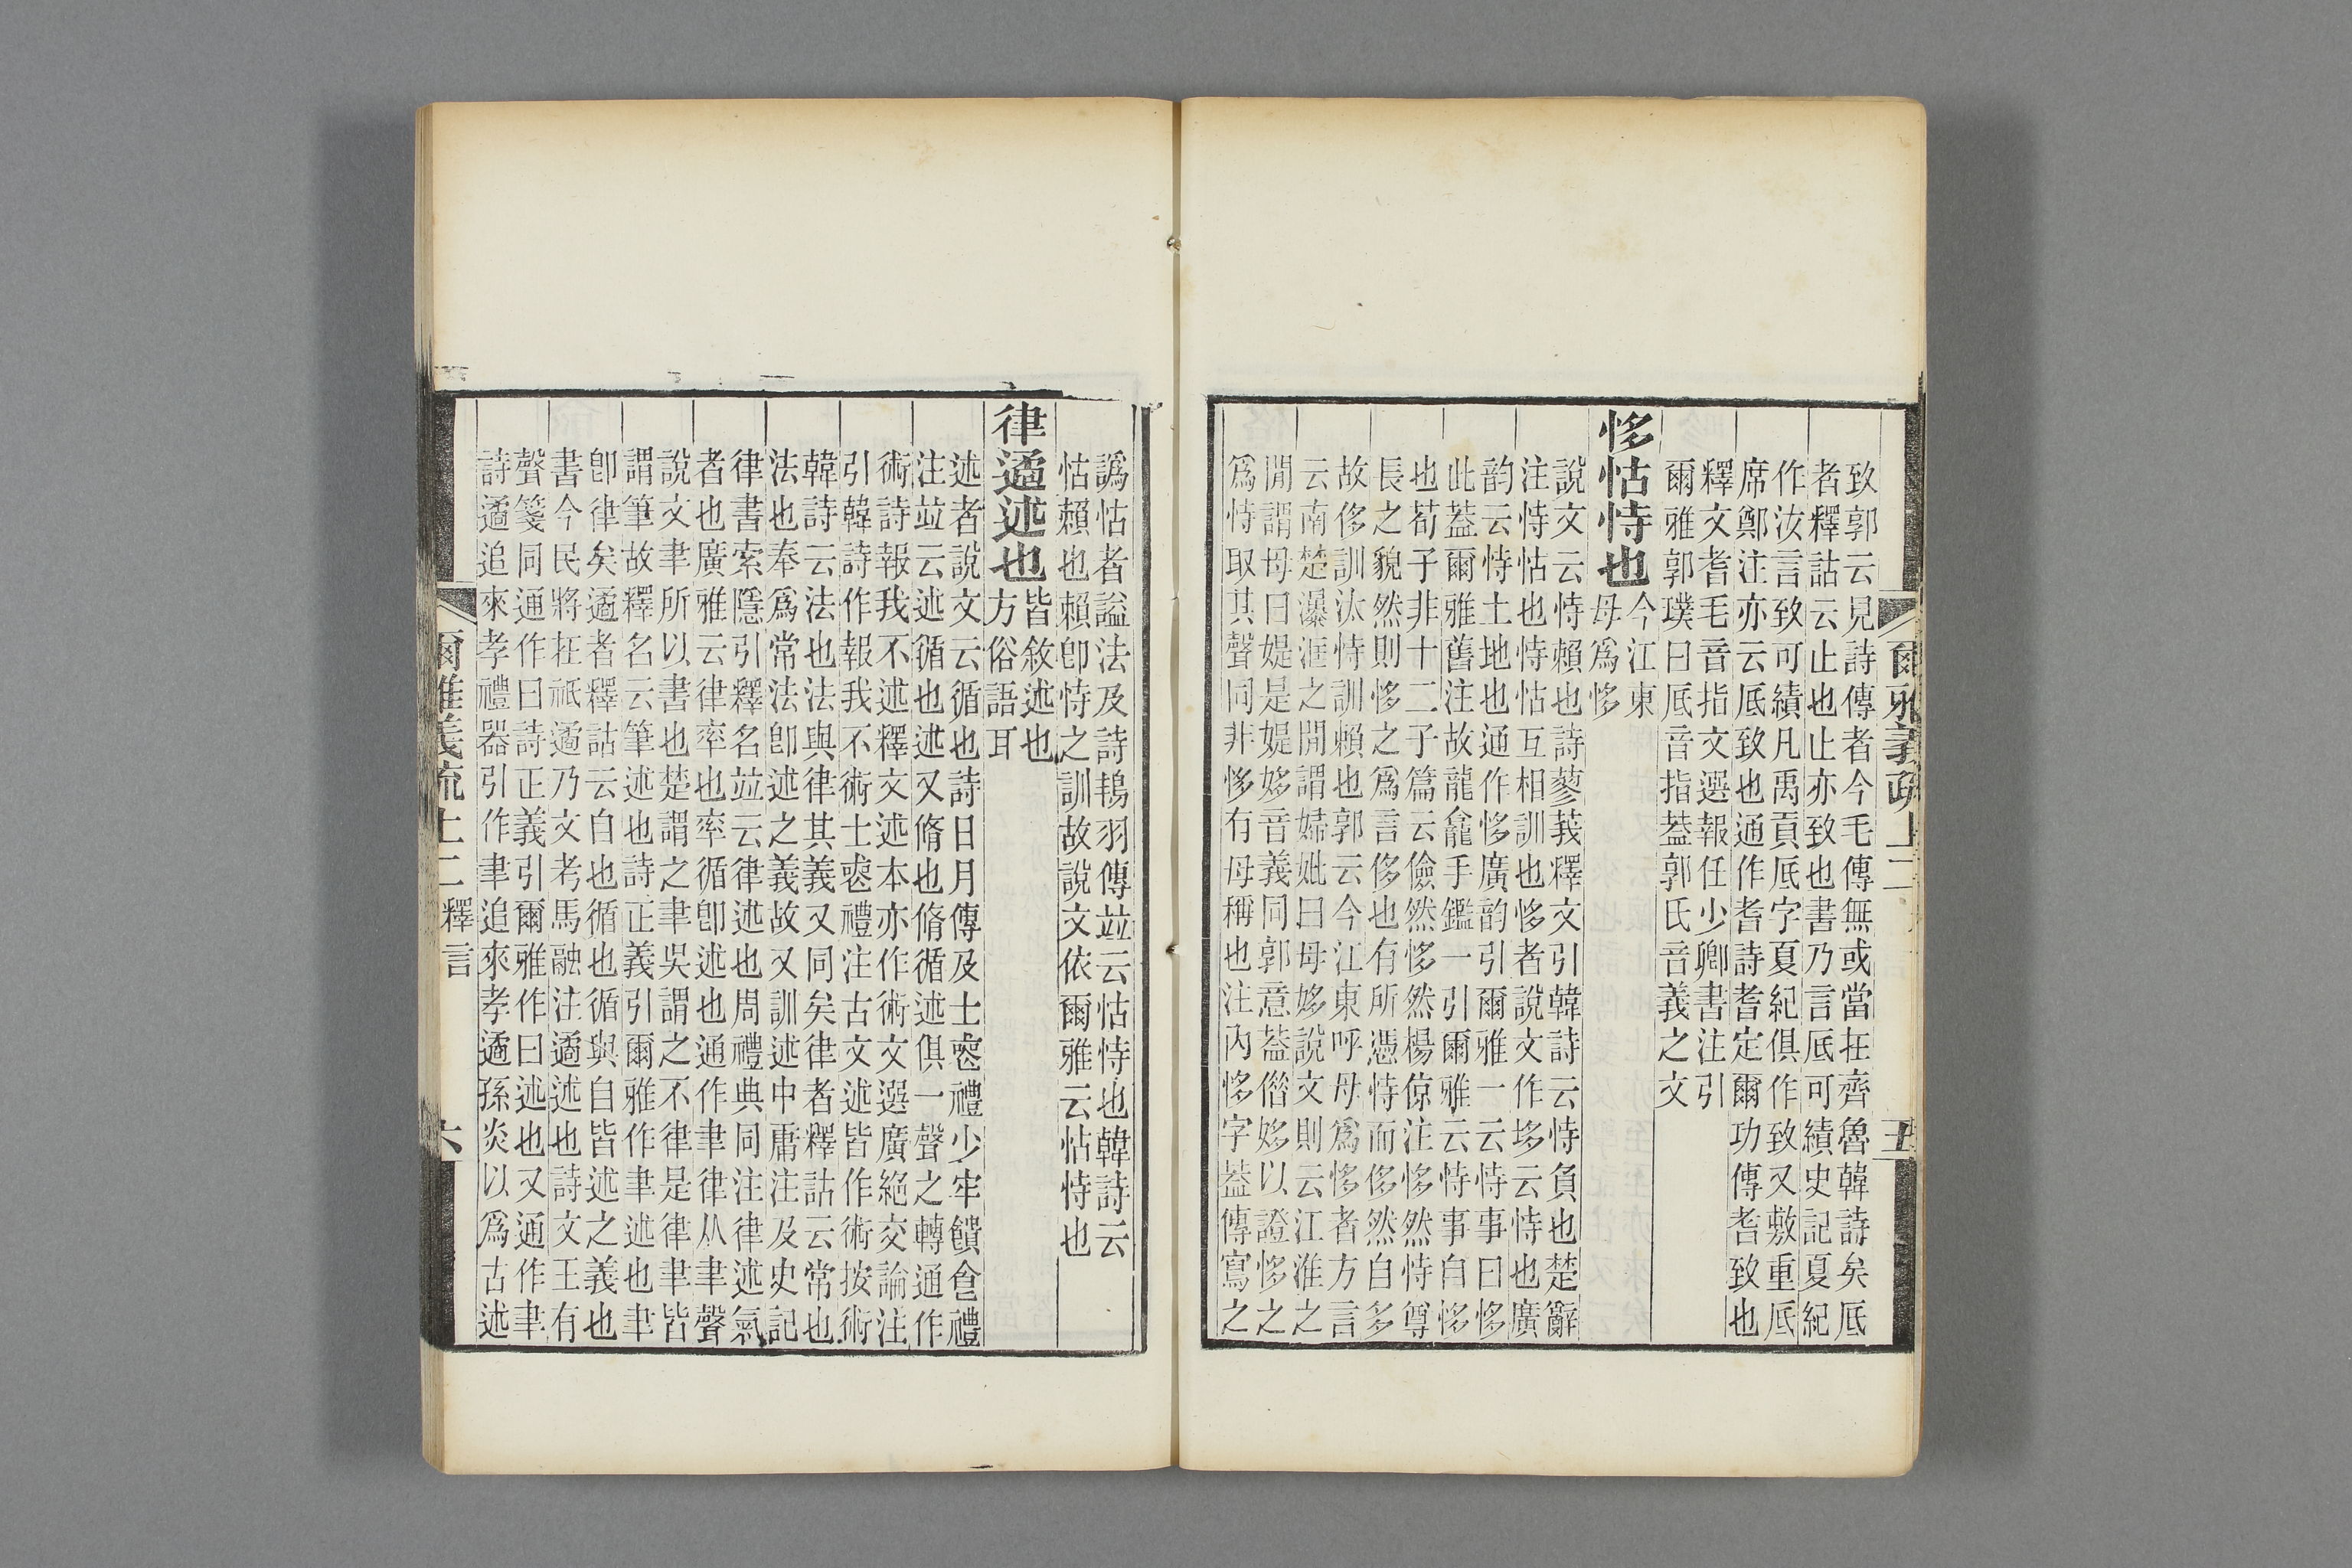 爾雅義疏上二
五
致郭云見詩傳者今毛傳無或當在齊魯韓詩矣厎
者釋詁云止也止亦致也書乃言厎可績史記夏紀
作汝言致可績凡禹貢厎字夏紀俱作致又敷重厎
席鄭注亦云厎致也通作耆詩耆定爾功傳耆致也
釋文耆毛音指文選報任少卿書注引
爾雅郭璞曰厎音指葢郭氏音義之文
恀怙恃也
今江東
母爲恀
說文云恃賴也詩蓼莪釋文引韓詩云恃負也楚辭
注恃怙也恃怙互相訓也恀者說文作垑云恃也廣
韵云恃土地也通作恀廣韵引爾雅一云恃事曰恀
此葢爾雅舊注故龍龕手鑑一引爾雅云恃事自恀
也荀子非十二子篇云儉然恀然楊倞注恀然恃尊
長之貌然則恀之爲言侈也有所憑恃而侈然自多
故侈訓汰恃訓賴也郭云今江東呼母爲恀者方言
云南楚瀑洭之閒謂婦妣曰母姼說文則云江淮之
閒謂母曰媞是媞姼音義同郭意葢偕姼以證恀之
爲恃取其聲同非恀有母稱也注內恀字葢傳寫之
譌怙者謚法及詩鴇羽傳竝云怙恃也韓詩云
怙賴也賴卽恃之訓故說文依爾雅云怙恃也
律遹述也
皆敘述也
方俗語耳
述者說文云循也詩日月傳及士喪禮少牢饋食禮
注竝云述循也述又脩也脩循述俱一聲之轉通作
術詩報我不述釋文述本亦作術文選廣絕交論注
引韓詩作報我不術士喪禮注古文述皆作術按術
韓詩云法也法與律其義又同矣律者釋詁云常也
法也奉爲常法卽述之義故又訓述中庸注及史記
律書索隱引釋名竝云律述也周禮典同注律述氣
者也廣雅云律率也率循卽述也通作聿律从聿聲
說文聿所以書也楚謂之聿吳謂之不律是律聿皆
謂筆故釋名云筆述也詩正義引爾雅作聿述也聿
卽律矣遹者釋詁云自也循也循與自皆述之義也
書今民將在祇遹乃文考馬融注遹述也詩文王有
聲箋同通作曰詩正義引爾雅作曰述也又通作聿
詩遹追來孝禮器引作聿追來孝遹孫炎以爲古述
爾雅義疏上二釋言
六